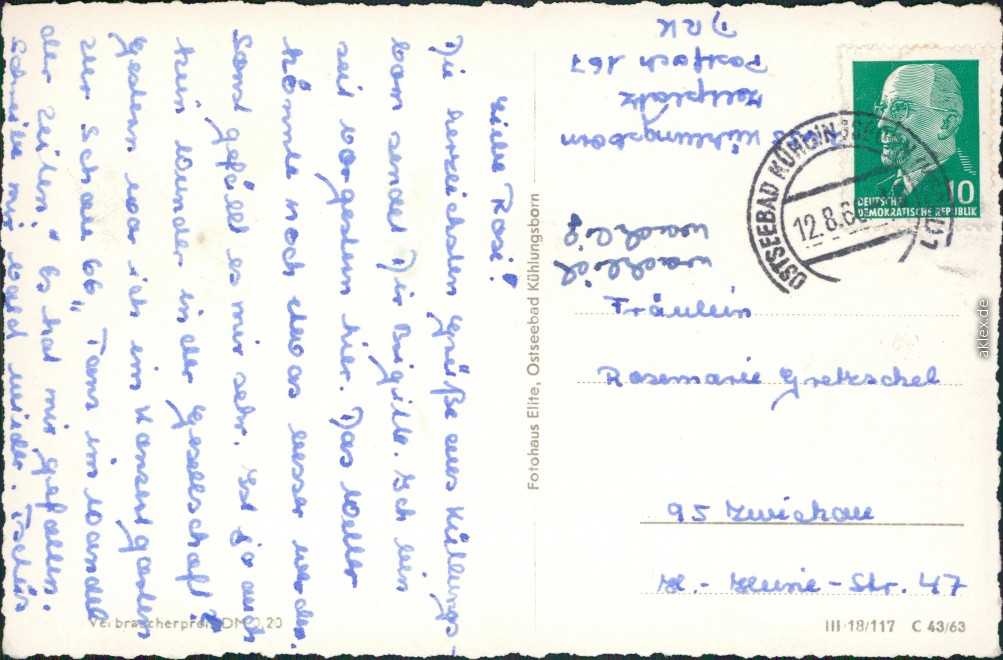 Liebe Rose!
Die herzlichsten Grüße aus Kühlungs-
born sendet Dir Brigitte. Ich bin
seit vorgestern hier. Das Wetter
könnte noch etwas besser werden.
Sonst gefällt es mir sehr. Ist ja auch
kein Wunder in der Gesellschaft!
Gestern war ich im Konzertgarten
zur Schau 66 "Tanz im Wandel
der Zeiten". Es hat mir gefallen.
Schreibe mir bald wieder. Tschüß
Kühlungsborn
Zeltplatz
Postfach 167
DRK
Fotohaus Elite, Ostseebad Kühlungsborn
DEUTSCHE
DEMOKRATISCHE REPUBLIK
10
OSTSEEBAD KÜHLUNGSBORN
12.8.66
Fräulein
Rosemarie Gretzschel
95 Zwickau
H.-Heine-Str. 47
Verbraucherpreis DM 0,20
III/18/117 C 43/63
aklex.de